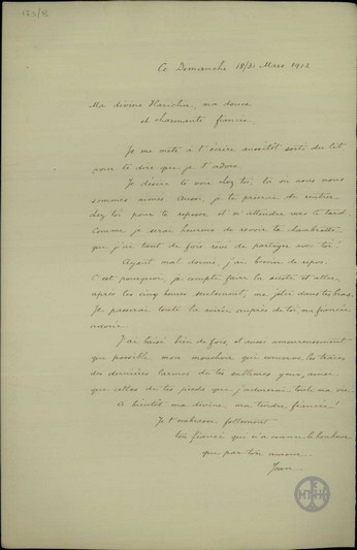 Ce Dimanche 18/31 Mars 1912
Ma divine Marichu, ma douce
et charmante fiancée
Je me mets à t'écrire aussitôt sorti du lit
pour te dire que je t'adore.
Je désire te voir chez toi, là où nous nous
sommes aimés. Aussi, je te prierai de rentrer
chez toi pour te reposer et m'attendre vers le tard.
Comme je serai heureux de revoir la chambrette
que j'ai tant de fois rêvé de partager avec toi!
Ayant mal dormi, j'ai besoin de repos.
C'est pourquoi, je compte faire la sieste et aller,
après les cinq heures seulement, me jeter dans tes bras.
Je passerai toute la soirée auprès de toi, ma fiancée
adorée.
J'ai baisé bien de fois, et aussi amoureusement
que possible mon mouchoir qui conserve les traces
des dernières larmes de tes sublimes yeux, ainsi
que celles de tes pieds que j'adorerai toute ma vie.
à bientôt ma divine, ma tendre fiancée!
Je t'embrasse follement
ton fiancé qui n'a connu le bonheur
que par ton amour.
Jean